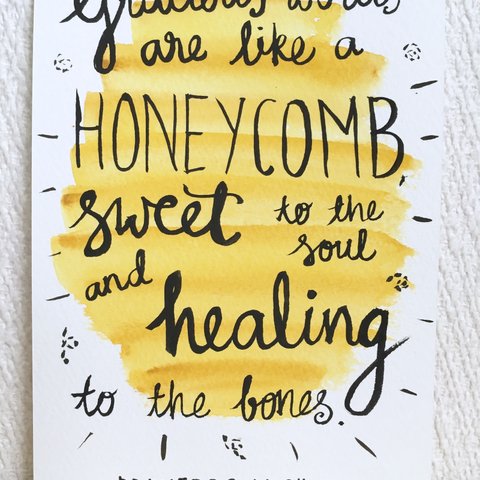 Gracious words
are like a
HONEYCOMB,
sweet to the
soul
and
healing
to the bones.